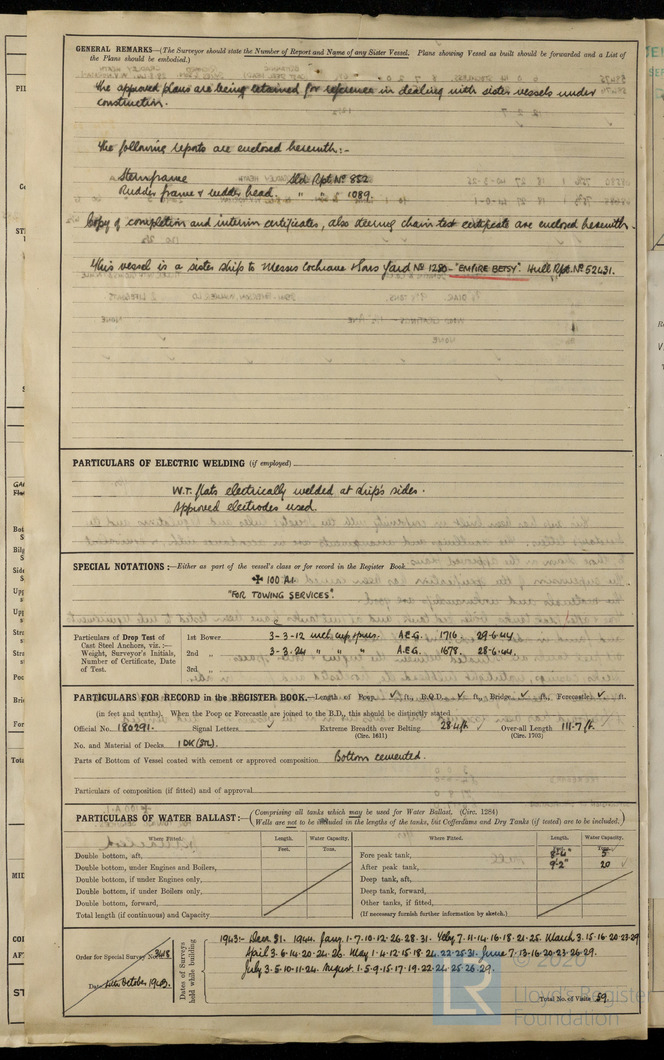 GENERAL REMARKS—(The Surveyor should state the Number of Report and Name of any Sister Vessel. Plans showing Vessel as built should be forwarded and a List of
the Plans should be embodied.)
The approved plans are being retained for reference in dealing with sister vessels under
construction.
The following reports are enclosed herewith:-
Sternframe Sld Rpt No 852
Rudder frame & rudder head. " " " 1089.
Copy of completion and interim certificates, also steering chain test certificate are enclosed herewith.
This vessel is a sister ship to Messrs Cochrane & Sons Yard No 1280 - "EMPIRE BETSY". Hull Rpt. No 52431.
PARTICULARS OF ELECTRIC WELDING (if employed)
W.T. flats electrically welded at ship's sides.
Approved electrodes used.
SPECIAL NOTATIONS:—Either as part of the vessel's class or for record in the Register Book
✠ 100 A1
"FOR TOWING SERVICES".
Particulars of Drop Test of
Cast Steel Anchors, viz.:—
Weight, Surveyor's Initials,
Number of Certificate, Date
of Test.
1st Bower 3-3-12 incl. cup, pins. A.E.G. 1716. 29.6.44.
2nd " 3-3-24 " " " A.E.G. 1678. 28.6.44.
3rd "
PARTICULARS FOR RECORD in the REGISTER BOOK.—Length of Poop ✓ ft., B.Q.D. ✓ ft., Bridge ✓ ft., Forecastle ✓ ft.
(in feet and tenths). When the Poop or Forecastle are joined to the B.D., this should be distinctly stated
Official No. 180291. Signal Letters Extreme Breadth over Belting 28.4 ft. Over-all Length 111.7 ft.
(Circ. 1611) (Circ. 1703)
No. and Material of Decks 1 DK (STL).
Parts of Bottom of Vessel coated with cement or approved composition Bottom cemented.
Particulars of composition (if fitted) and of approval
PARTICULARS OF WATER BALLAST:—(Comprising all tanks which may be used for Water Ballast. (Circ. 1284)
Wells are not to be included in the lengths of the tanks, but Cofferdams and Dry Tanks (if tested) are to be included.)
Where Fitted. Length. Water Capacity. Where Fitted. Length. Water Capacity.
Feet. Tons.
Double bottom, aft, Fore peak tank, 8'-6" 5
Double bottom, under Engines and Boilers, After peak tank, 9'-2" 20
Double bottom, if under Engines only, Deep tank, aft,
Double bottom, if under Boilers only, Deep tank, forward,
Double bottom, forward, Other tanks, if fitted,
Total length (if continuous) and Capacity (If necessary furnish further information by sketch.)
Order for Special Survey No. 3418
Date 11th October 1943.
Dates of Surveys
held while building
1943:- Decr 31. 1944. Jany. 1.7.10.12.26.28.31. Feby 7.11.14.16.18.21.25. March 3.15.16.20.23.29
April 3.6.14.20.24.26. May 1.4.12.15.18.24.22.25.31. June 7.13.16.20.23.26.29.
July 3.5.10.11.24. August 1.5.9.15.17.19.22.24.25.26.29.
Total No. of Visits 59.
© 2020
LR
Lloyd's Register
Foundation